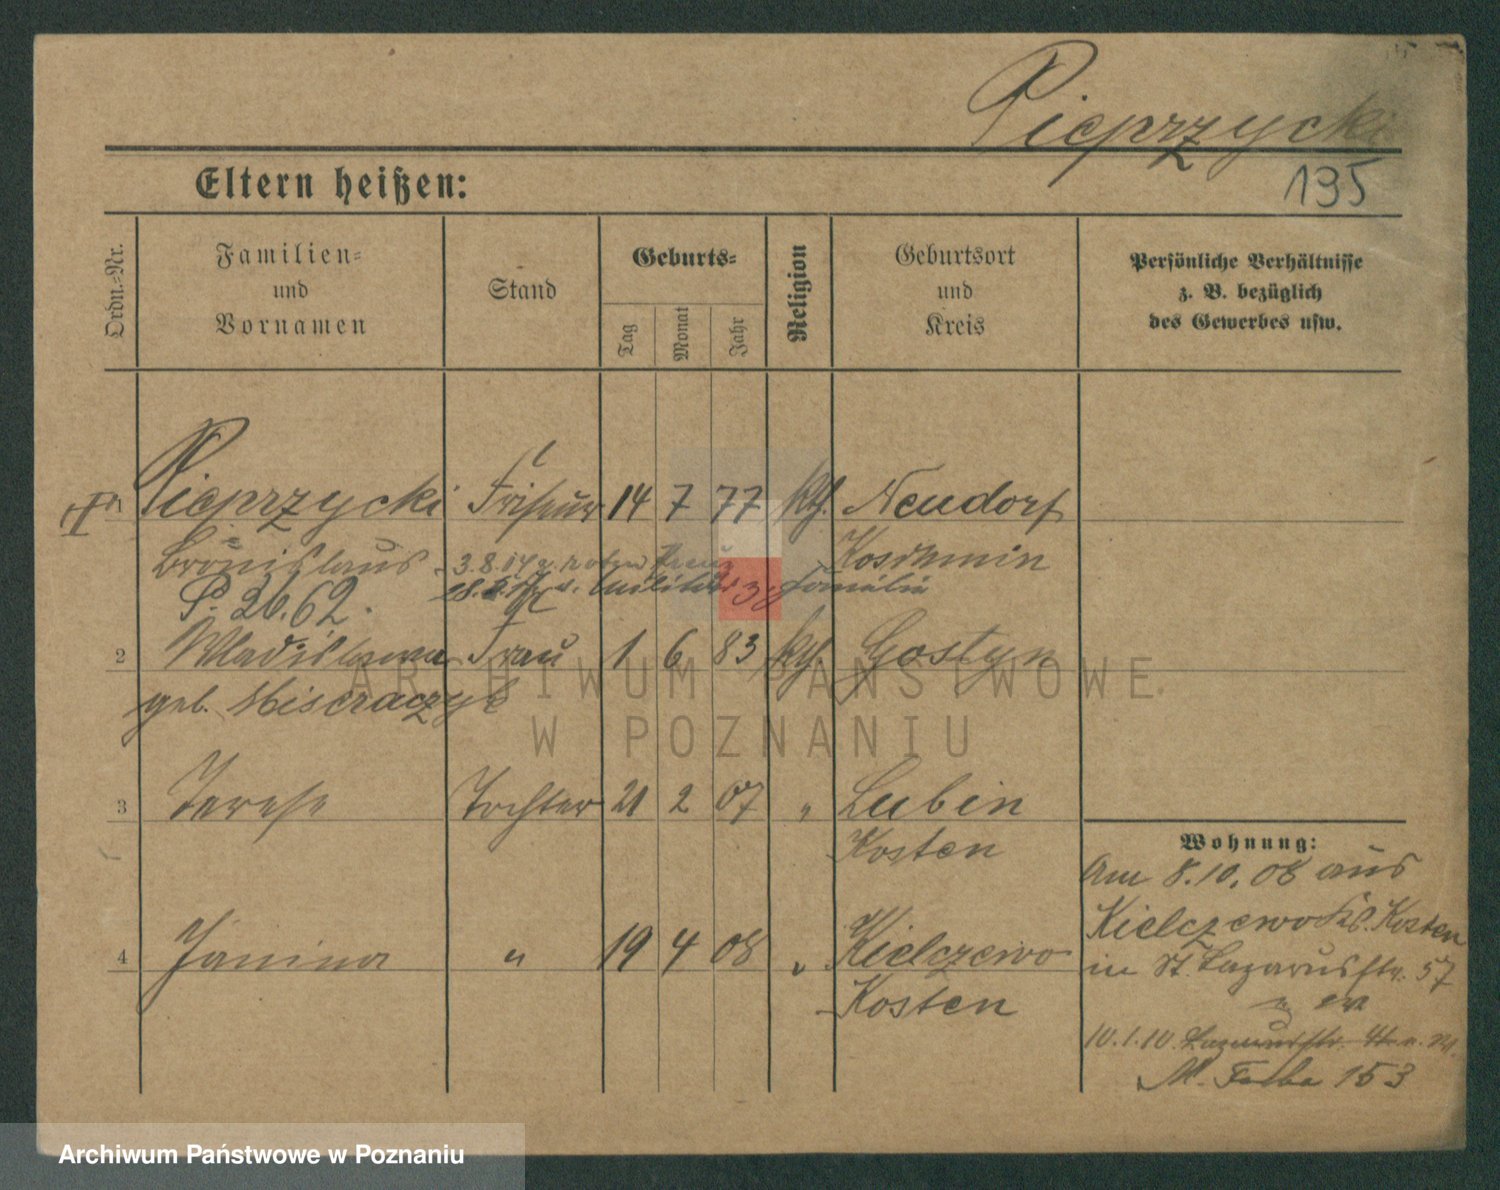 Pieprzycki
Eltern heißen:
195
Ordn.=Nr.
Familien=
und
Vornamen
Stand
Geburts=
Tag
Monat
Jahr
Religion
Geburtsort
und
Kreis
Persönliche Verhältnisse
z. B. bezüglich
des Gewerbes usw.
Pieprzycki Friseur 14 7 77 kth. Neudorf
Bronislaus Koschmin
3.8.04 z. roten Kreuz
P. 26.62.
2 Wladislawa Frau 1 6 83 kth. Gostyn
geb. Misiraczyk
3 Terese Tochter 21 2 07 " Lubin
Kosten
Wohnung:
Am 8.10.08 aus
4 Janina " 19 4 08 " Kielczewo
Kosten
Kielczewo Kosten
in St. Lazarusstr. 57
10.1.10. Lazarusstr.
M. 153
ARCHIWUM PAŃSTWOWE
W POZNANIU
Archiwum Państwowe w Poznaniu